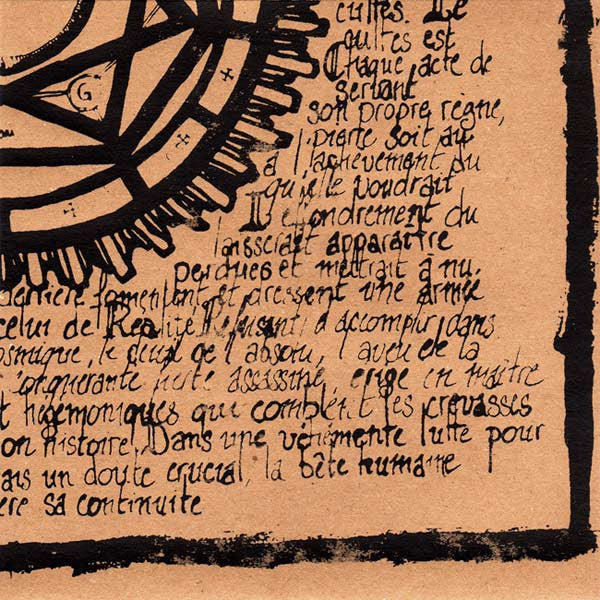 cultes. Le
cultes est
Chaque acte de
servant
son propre règne,
pierre soit au
à l'achèvement du
qu'elle voudrait
L'effondrement du
laisserait apparaître
perdues et mettrait à nu.
derrière fomentent et dressent une armée
celui de Réalité. Refusant d'accomplir dans
osmique, le deuil de l'absolu, l'aveu de la
conquérante juste assassine, érige en maître
t hégémoniques qui comblent les crevasses
on histoire. Dans une véhémente lutte pour
ais un doute crucial, la bête humaine
ère sa continuité
G